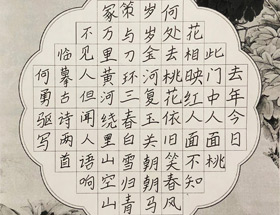 去年今日
此门中人面桃
花相映红人面不知
何处去桃花依旧笑春风
岁岁金河复玉关朝朝马
策与刀环三春白雪归青
冢万里黄河绕黑山空山
不见人但闻人语响
临摹古诗两首
何勇驱写